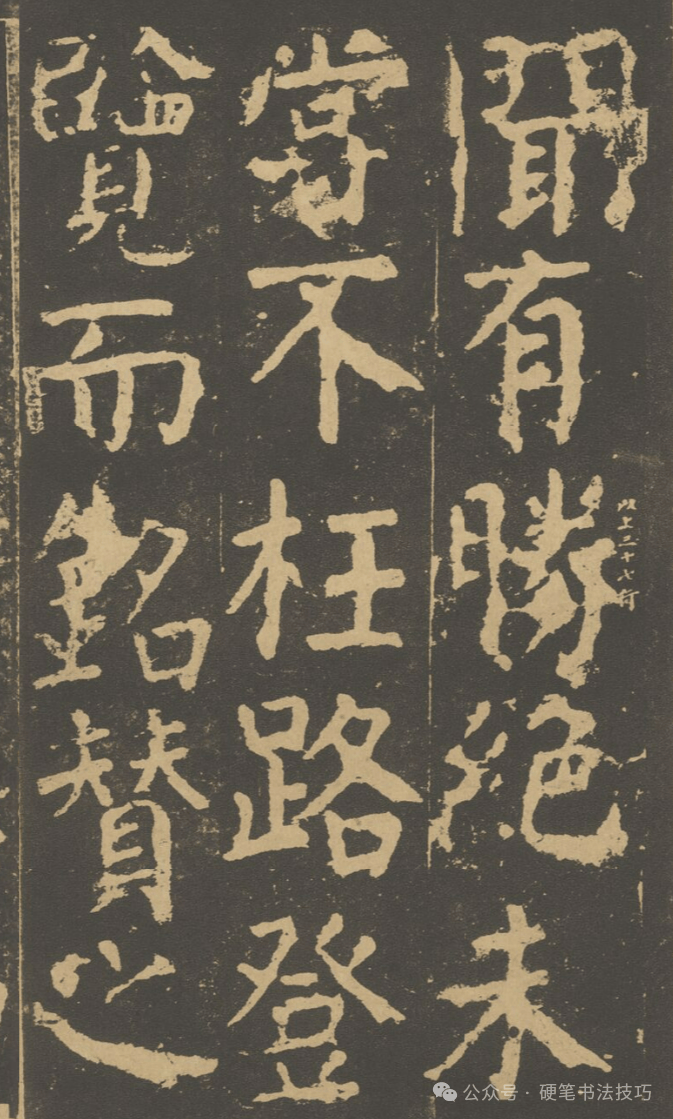 聞有勝絕未
甞不枉路登
覽而銘贊之
以上二十七行
公众号 · 硬笔书法技巧